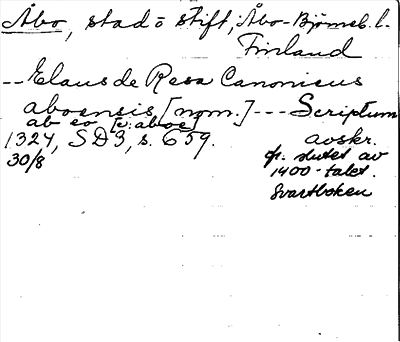 Åbo, stad o stift, Åbo-Björneb. l.
Finland
-- Elaus de Resa Canonicus
aboensis [nom.] --- Scriptum
ab eo [c: aboe]
1324, SD3, s. 659.
30/8
avskr.
fr. slutet av
1400-talet.
Svartboken